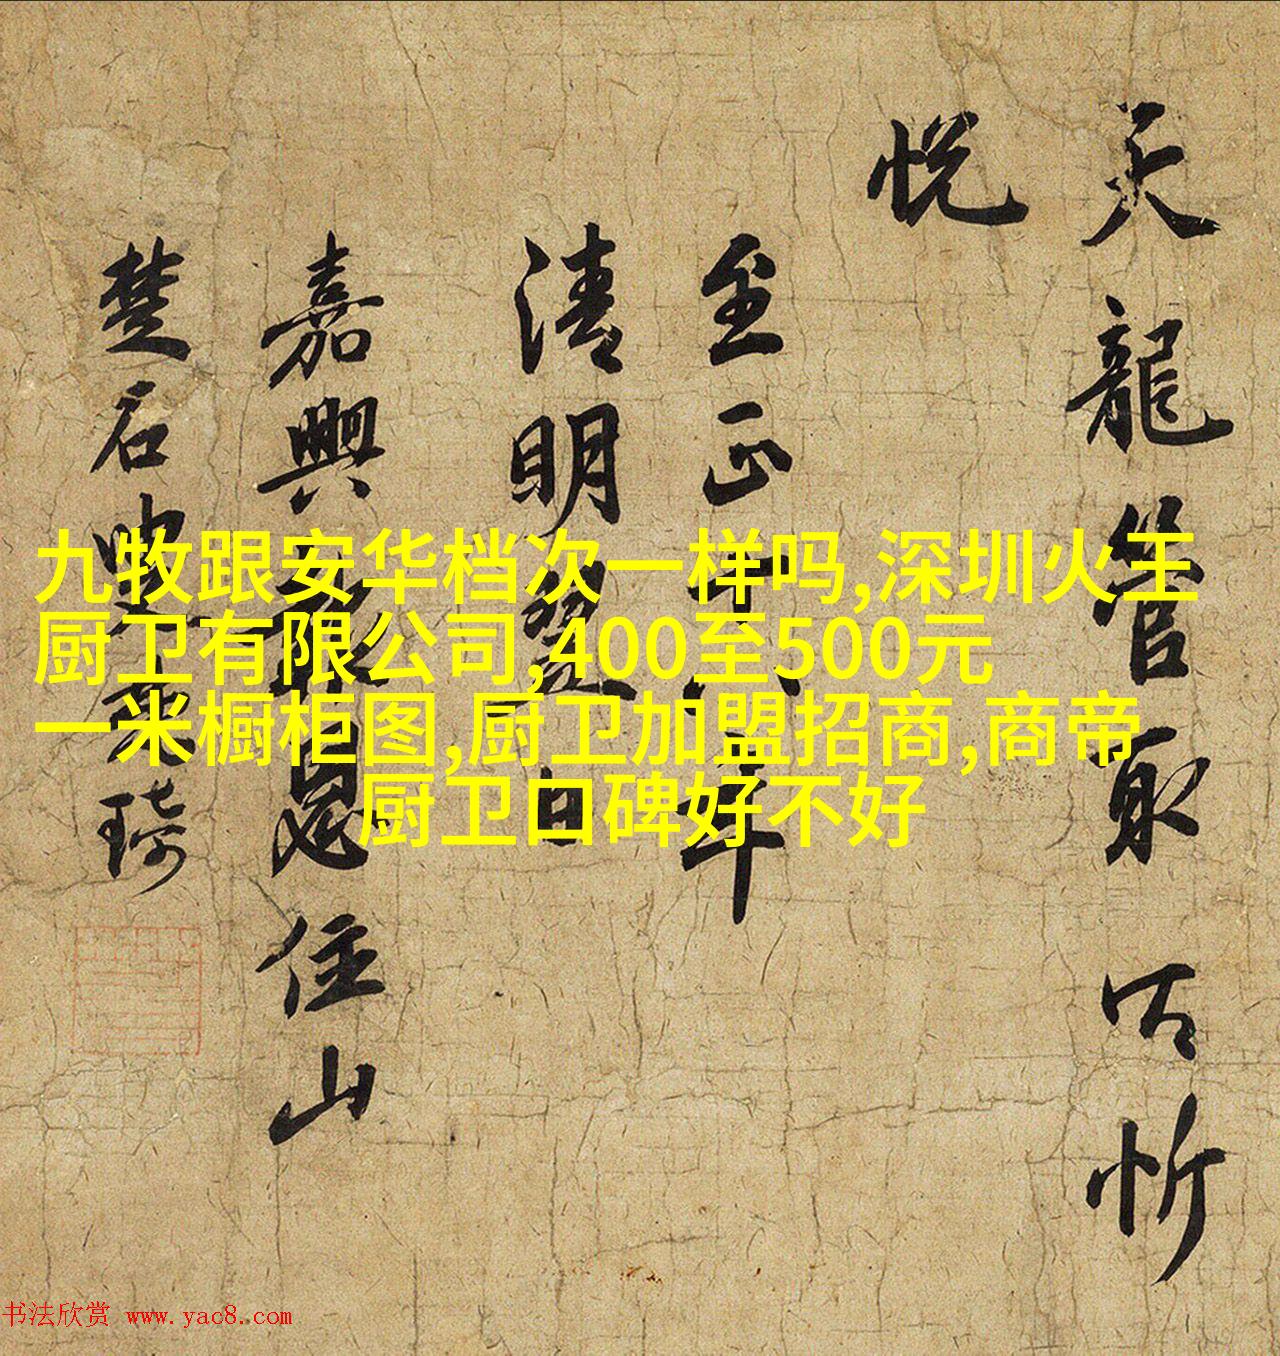 天龍管取以忻
悦
至正十八年
清明翌日
嘉興報恩住山
楚石叟梵琦
九牧跟安华档次一样吗,深圳火王
厨卫有限公司,400至500元
一米橱柜图,厨卫加盟招商,商帝
厨卫口碑好不好
书法欣赏 www.yac8.com